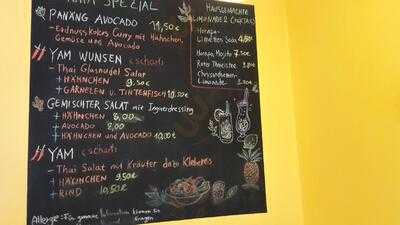 SPEZIAL
PANÄNG AVOCADO 11,50€
- Erdnuss Kokos Curry mit Hähnchen,
Gemüse und Avocado
YAM WUNSEN scharf
- Thai Glasnudel Salat
+ HÄHNCHEN 9,50€
+ GARNELEN U. TINTENFISCH 10,50€
GEMISCHTER SALAT mit Ingwerdressing
+ HÄHNCHEN 8,00
+ AVOCADO 8,00
+ HÄHNCHEN und AVOCADO 10,00€
YAM scharf
- Thai Salat mit Kräuter dazu Klebereis
+ HÄHNCHEN 9,50€
+ RIND 10,50€
Allergie: Für genaue Information können Sie
fragen
HAUSGEMACHTE
LIMONADE & COCKTAILS
Horapa-
Limetten Soda 4,50€
Horapa Mojito 7,50€
Roter Thaieistee
Chrysanthemen-
Limonade